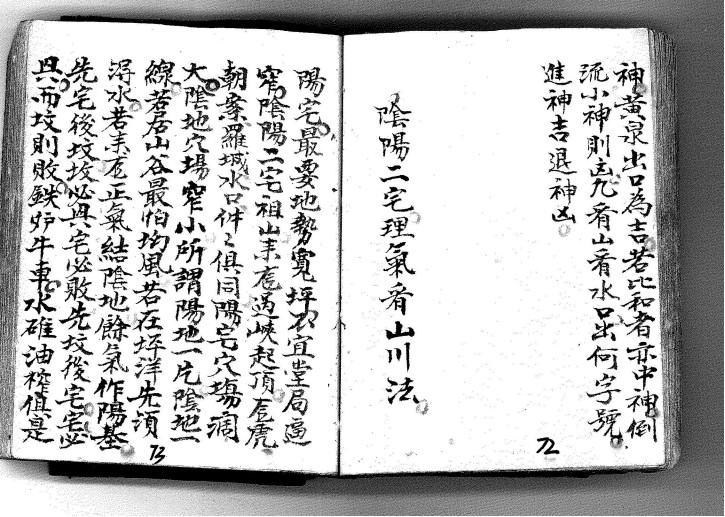 神黃泉出口為吉若比和者亦中神倒
流小神則凶凡看山看水口出何字號
進神吉退神凶
陰陽二宅理氣看山川法
72
陽宅最要地勢寬坪不宜堂局逼
窄陰陽二宅祖山來龍過峽起頂龍虎
朝案羅城水口件々俱同陽宅穴場闊
大陰地穴場窄小所謂陽地一片陰地一
線若居山谷最怕坳風若在坪洋先須
淂水若來龍正氣結陰地餘氣作陽基
先宅後坟坟必興宅必敗先坟後宅宅必
興而坟則敗鉄炉牛車水碓油榨俱是
73